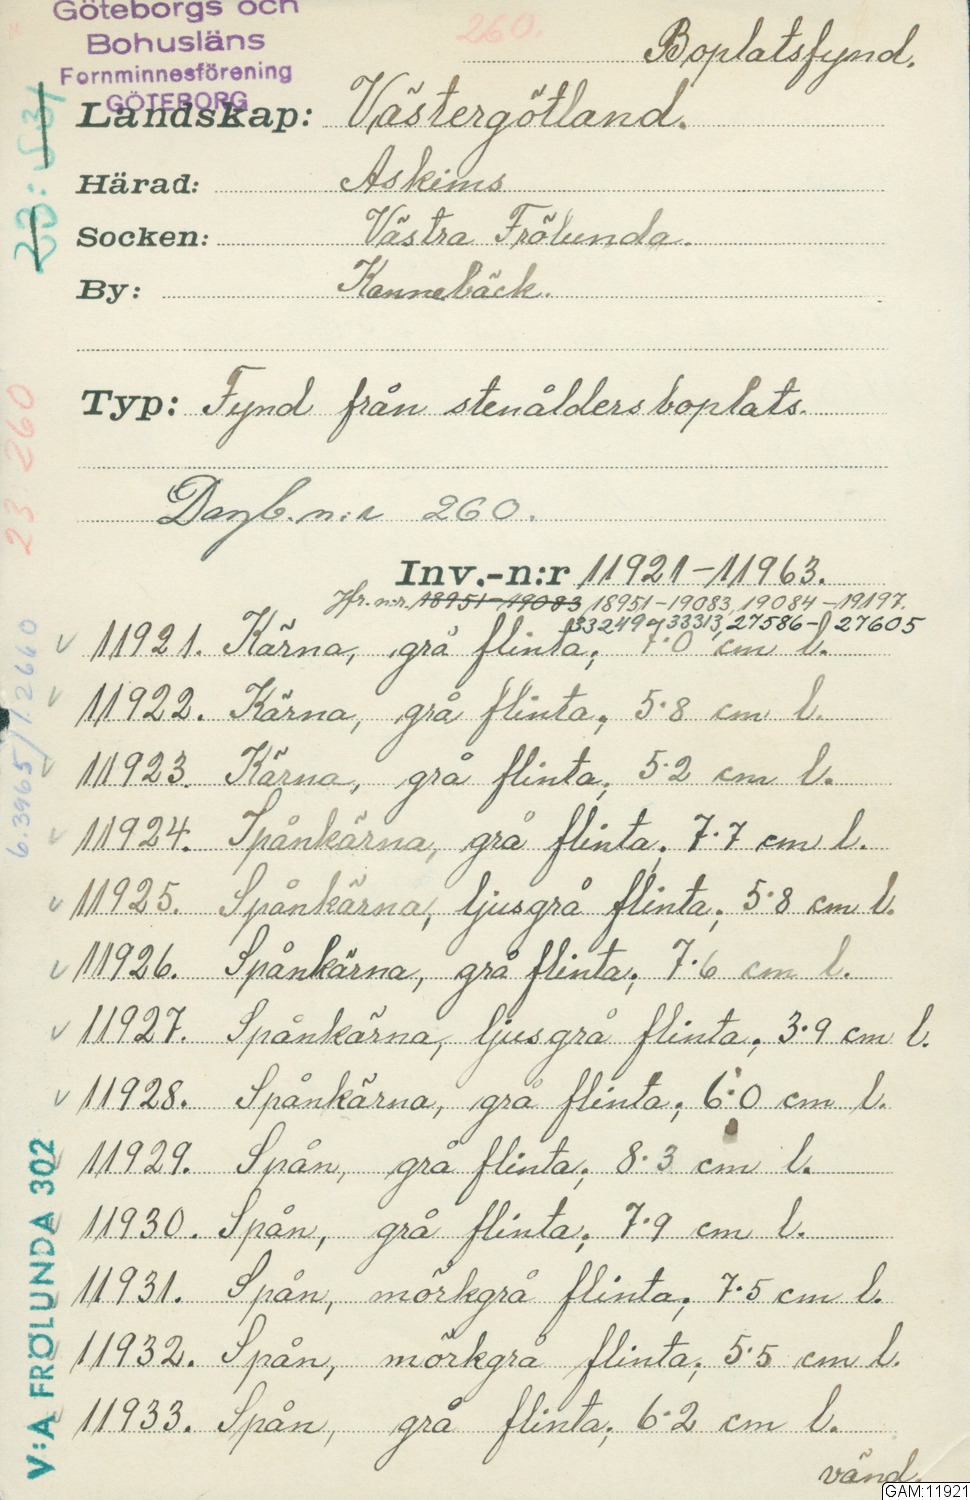 Göteborgs och
Bohusläns
Fornminnesförening
GÖTEBORG
260.
Boplatsfynd.
Landskap: Västergötland.
Härad: Askims
Socken: Västra Frölunda.
By: Kannebäck.
Typ: Fynd från stenåldersboplats.
Dagb. n:r 260.
Inv.-n:r 11921-11963.
Jfr. n:r. 18951-19083, 18951-19083, 19084-19197.
33249-33313, 27586-27605
11921. Kärna, grå flinta; 7·0 cm l.
11922. Kärna, grå flinta; 5·8 cm l.
11923. Kärna, grå flinta; 5·2 cm l.
11924. Spånkärna, grå flinta; 7·7 cm l.
11925. Spånkärna, ljusgrå flinta; 5·8 cm l.
11926. Spånkärna, grå flinta; 7·6 cm l.
11927. Spånkärna, ljusgrå flinta; 3·9 cm l.
11928. Spånkärna, grå flinta; 6·0 cm l.
11929. Spån, grå flinta; 8·3 cm l.
11930. Spån, grå flinta; 7·9 cm l.
11931. Spån, mörkgrå flinta; 7·5 cm l.
11932. Spån, mörkgrå flinta; 5·5 cm l.
11933. Spån, grå flinta; 6·2 cm l.
vänd.
23:
23:260
6.3965/12660
V:A FRÖLUNDA 302
GAM:11921